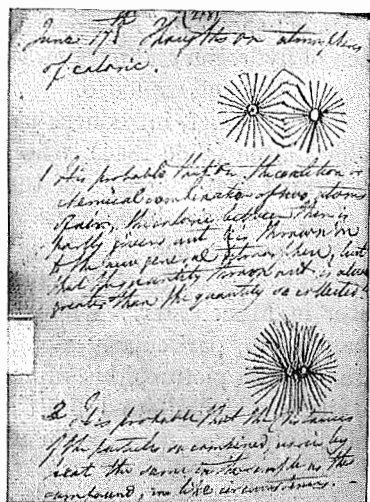 (248)
June 17th Thoughts on atmospheres
of caloric.
1 It is probable that on the coalition or
chemical combination of two atoms
of air, the caloric between them is
partly given out & is thrown in
to the new general atmosphere, but
that the quantity thrown out is always
greater than the quantity so collected.
2. It is probable that the distances
of the particles so combined never by
heat the same in the simple as the
compound, in like circumstances.